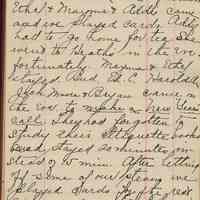 Ethel & Maxine & Adda came
and we played cards. Addy
had to go home for the She
went to Heaths in the Eve
fortunately Maxine & Ethel
stayed. Bud, Ed. C. Harold S.
Jean Muir & Bryan came in
the Eve to make a New Years
call. They had forgotten to
study their Etiquette books
and stayed 20 minutes in-
stead of 10 min. After letting
off some of our steam we
played cards